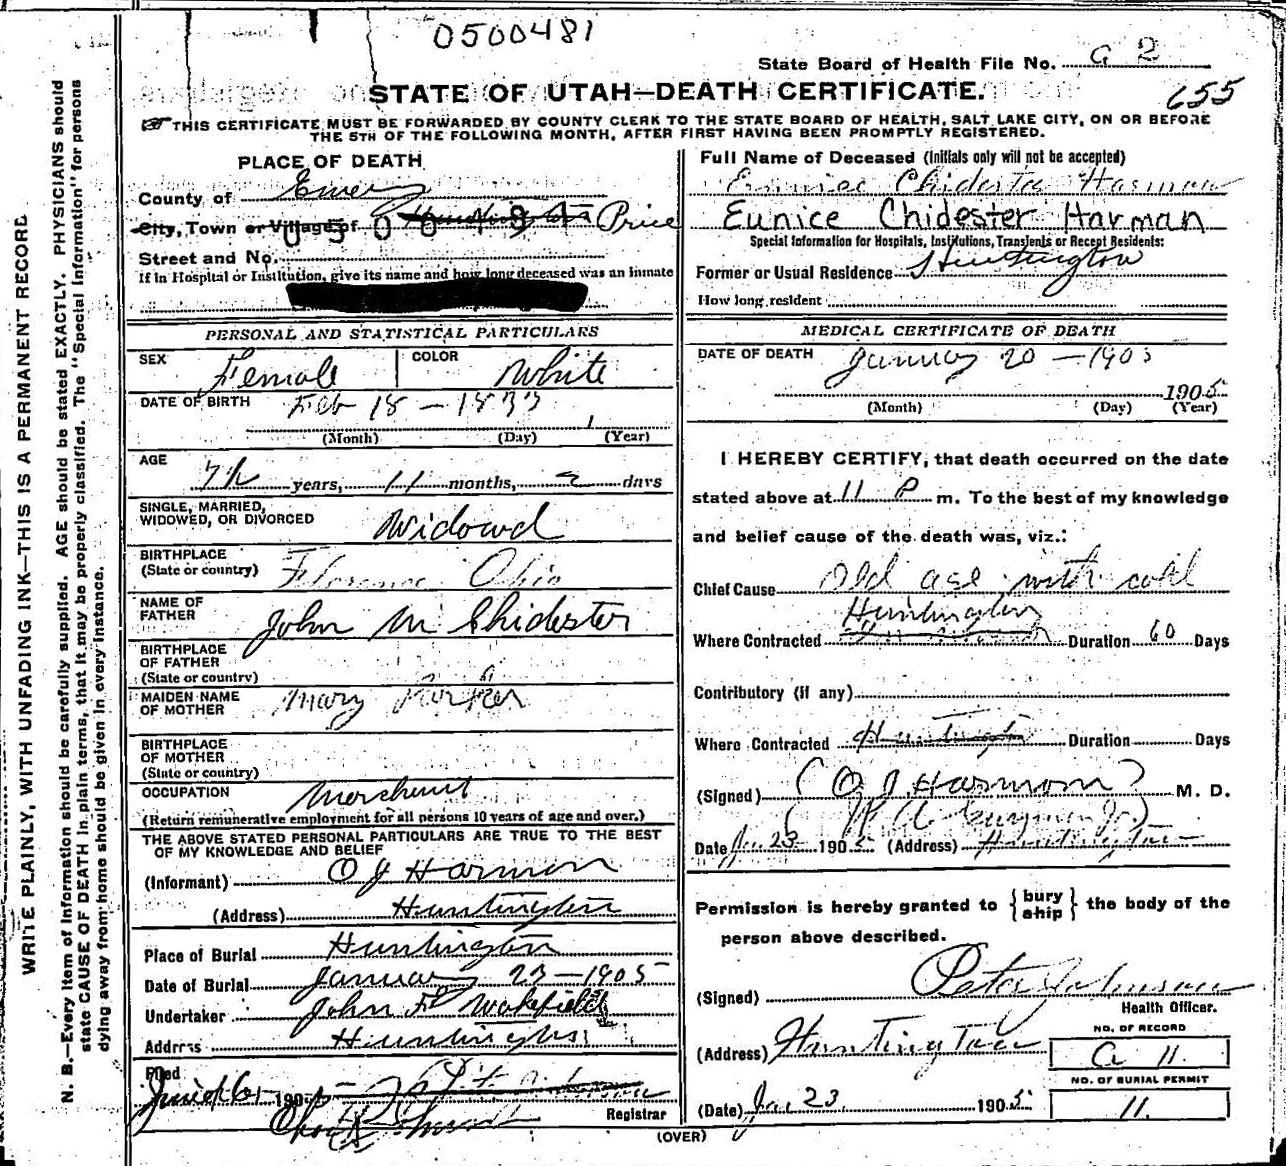 0500481
State Board of Health File No. G 2
655
STATE OF UTAH—DEATH CERTIFICATE.
THIS CERTIFICATE MUST BE FORWARDED BY COUNTY CLERK TO THE STATE BOARD OF HEALTH, SALT LAKE CITY, ON OR BEFORE
THE 5TH OF THE FOLLOWING MONTH, AFTER FIRST HAVING BEEN PROMPTLY REGISTERED.
WRITE PLAINLY, WITH UNFADING INK—THIS IS A PERMANENT RECORD
N. B.—Every item of information should be carefully supplied. AGE should be stated EXACTLY. PHYSICIANS should
state CAUSE OF DEATH in plain terms, that it may be properly classified. The "Special Information" for persons
dying away from home should be given in every instance.
PLACE OF DEATH
County of Emery
City, Town or Village of Huntington Price
0500481
Street and No.
If in Hospital or Institution, give its name and how long deceased was an inmate
PERSONAL AND STATISTICAL PARTICULARS
SEX Female COLOR White
DATE OF BIRTH Feb 18 - 1833
(Month) (Day) (Year)
AGE
71 years, 11 months, 2 days
SINGLE, MARRIED,
WIDOWED, OR DIVORCED Widowd
BIRTHPLACE
(State or country) Florence Ohio
NAME OF
FATHER John M Chidester
BIRTHPLACE
OF FATHER
(State or country)
MAIDEN NAME
OF MOTHER Mary Parker
BIRTHPLACE
OF MOTHER
(State or country)
OCCUPATION Merchant
(Return remunerative employment for all persons 10 years of age and over.)
THE ABOVE STATED PERSONAL PARTICULARS ARE TRUE TO THE BEST
OF MY KNOWLEDGE AND BELIEF
(Informant) O J Harmon
(Address) Huntington
Place of Burial Huntington
Date of Burial January 23-1905
Undertaker John F Wakefield
Address Huntington
Filed
1905
Registrar
Full Name of Deceased (Initials only will not be accepted)
Eunice Chidester Harman
Eunice Chidester Harman
Special Information for Hospitals, Institutions, Transients or Recent Residents:
Former or Usual Residence Huntington
How long resident
MEDICAL CERTIFICATE OF DEATH
DATE OF DEATH January 20-1905
1905
(Month) (Day) (Year)
I HEREBY CERTIFY, that death occurred on the date
stated above at 11 P m. To the best of my knowledge
and belief cause of the death was, viz.:
Chief Cause Old age with cold
Huntington
Where Contracted Duration 60 Days
Contributory (if any)
Where Contracted Huntington Duration Days
(Signed) (O J Harmon) M. D.
Date Jan 23 1905 (Address) Huntington
Permission is hereby granted to {bury ship} the body of the
person above described.
(Signed) Peter Johnson
Health Officer.
(Address) Huntington
NO. OF RECORD
G 11.
NO. OF BURIAL PERMIT
11.
(Date) Jan 23 1905
(OVER)